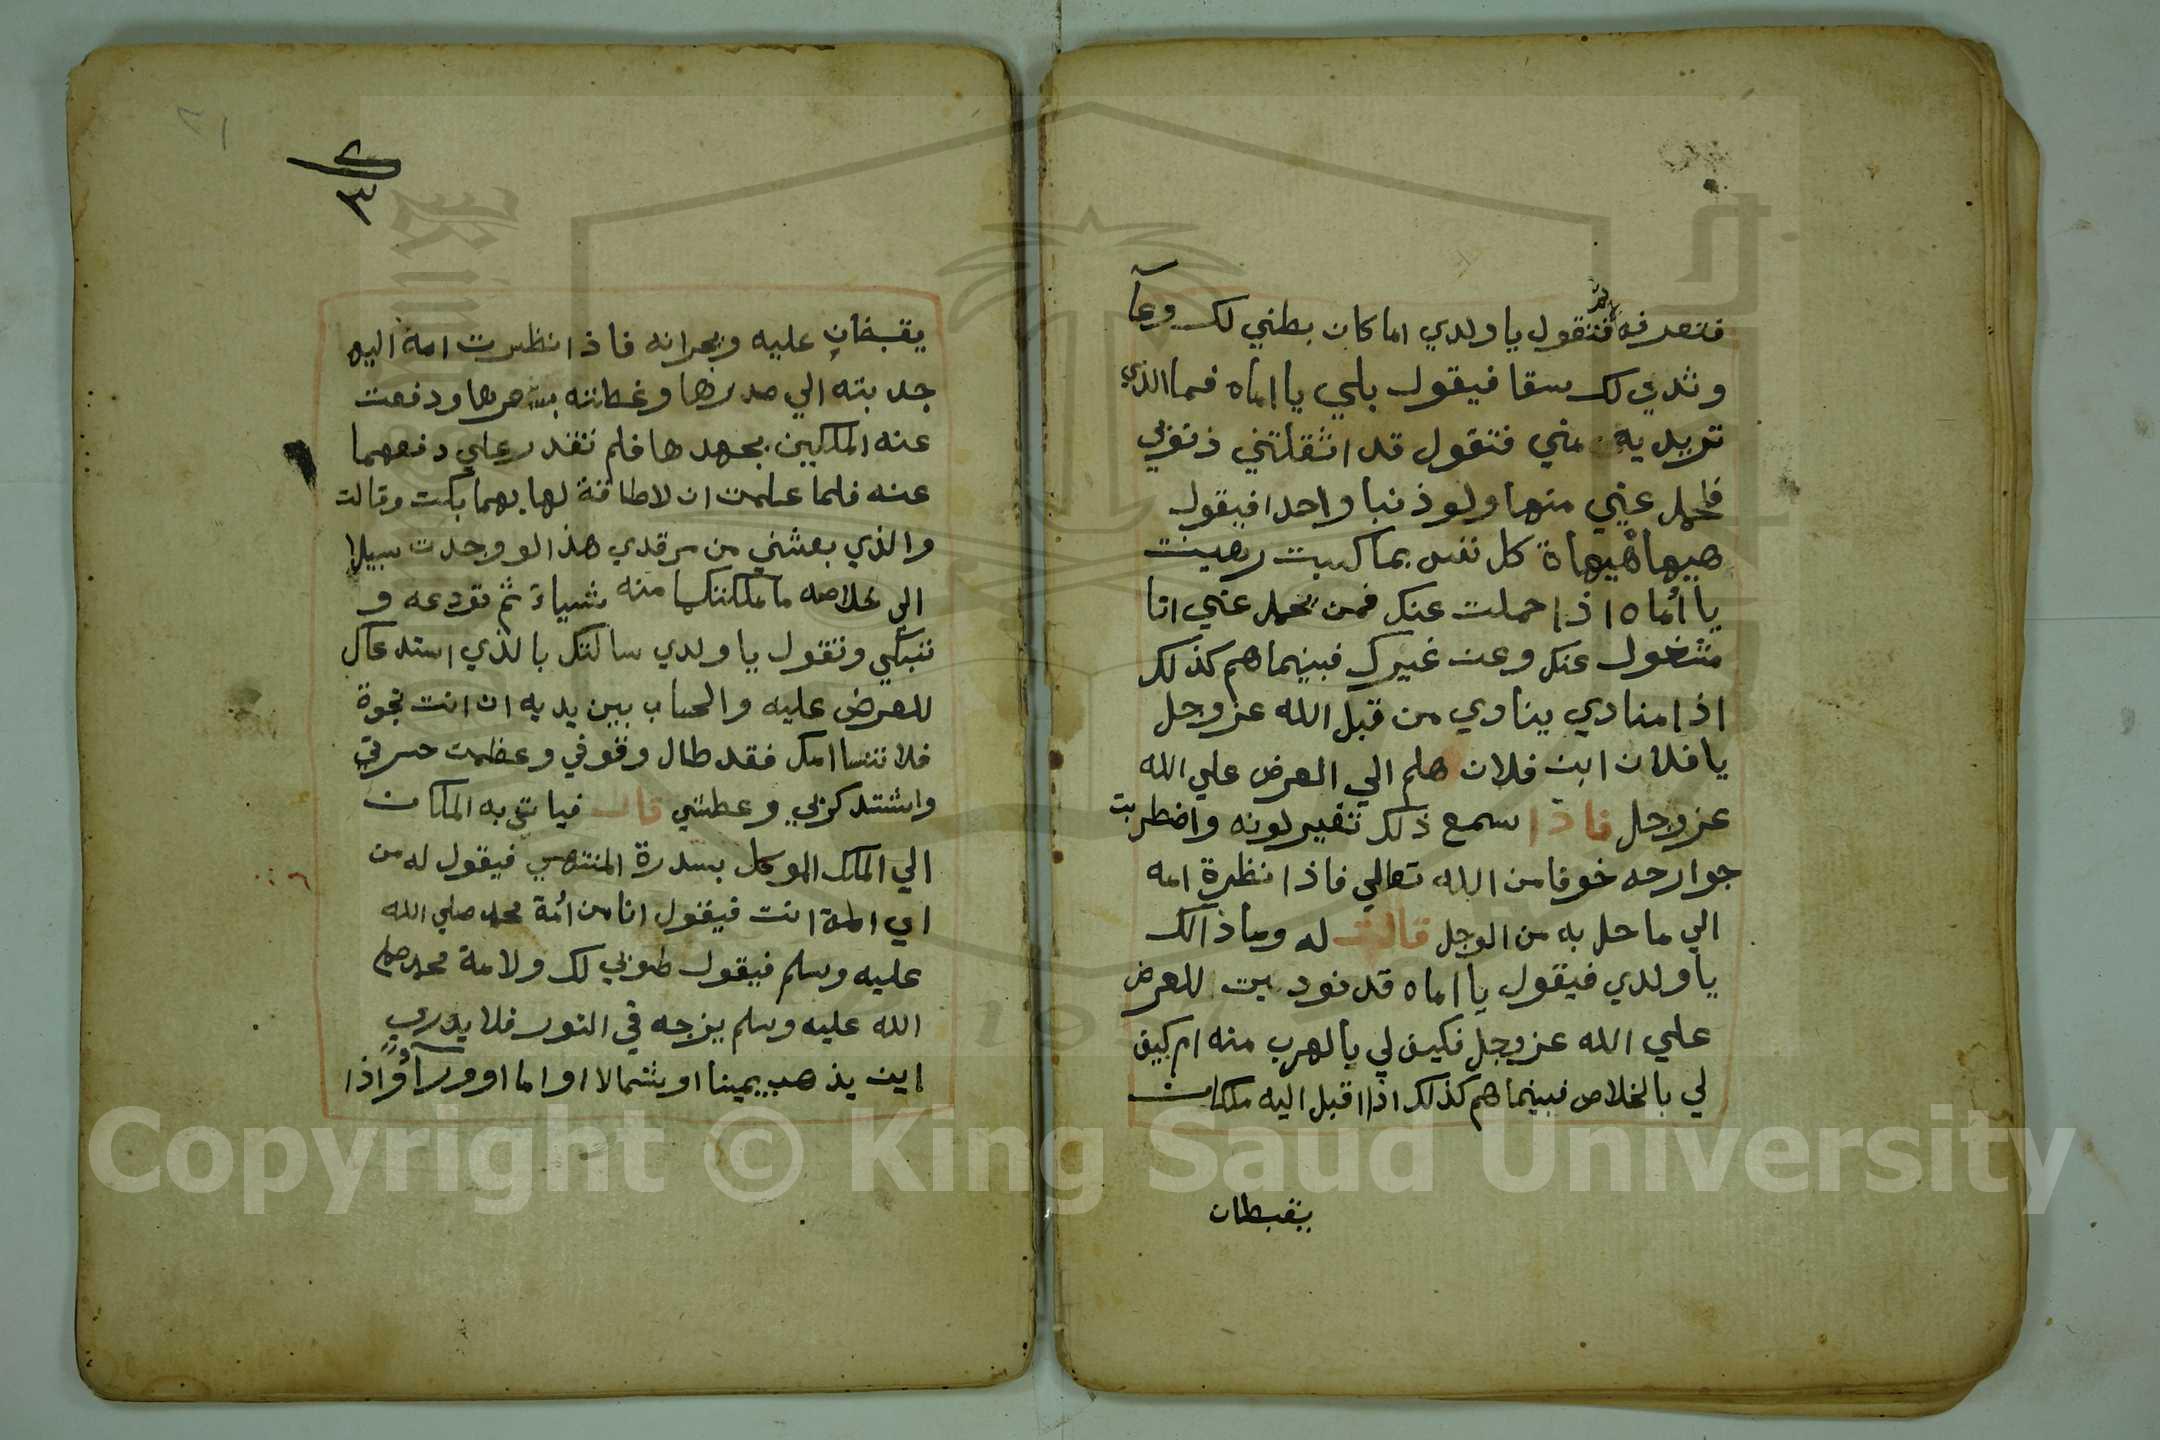 فتعرفه فتقول يا ولدي اما كان بطني لك وعآ
وثدي لك سقا فيقول بلي يا اماه فما الذي
تريديه مني فتقول قد اثقلتني ذنوبي
فاحمل عني منها ولو ذنبا واحدا فيقول
هيهاهيهاة كل نفس بما كسبت رهينت
يا أماه اذا حملت عنك فمن يحمل عني انا
مشغول عنك وعن غيرك فبينماهم كذلك
اذا منادي ينادي من قبل الله عز وجل
يا فلان ابن فلان هلم الي العرض علي الله
عز وجل فاذا سمع ذلك تتغير لونه واضطربت
جوارحه خوفا من الله تعالي فاذا نظرة امه
الي ما حل به من الوجل قالت له وما ذالك
يا ولدي فيقول يا اماه قد نوديت للعرض
علي الله عز وجل فكيف لي بالهرب منه ام كيف
لي بالخلاص فبينماهم كذلك اذا اقبل اليه ملكان
يقبطان
٣
يقبضان عليه ويجرانه فاذا نظرت امه اليه
جدبته الي صدرها وغطته بشعرها ودفعت
عنه الملكين بجهدها فلم تقدر علي دفعهما
عنه فلما علمت ان لا طاقة لها بهما بكت وقالت
والذي بعثني من مرقدي هذا لو وجدت سبيلا
الي خلاصه ما مكنتكما منه شياء ثم تودعه و
تبكي وتقول يا ولدي سالتك بالذي استدعاك
للعرض عليه والحساب بين يديه ان انت نجوة
فلا تنسا امك فقد طال وقوفي وعظمت حسرتي
واشتد كربي وعطشي قال فياتي به الملكان
الي الملك الموكل بسدرة المنتهي فيقول له من
اي امة انت فيقول انا من أمة محمد صلي الله
عليه وسلم فيقول طوبي لك ولامة محمد صلي
الله عليه وسلم يزجه في النور فلا يدري
اين يذهب يمينا او شمالا او اما او ورآ واذا
Copyright © King Saud University